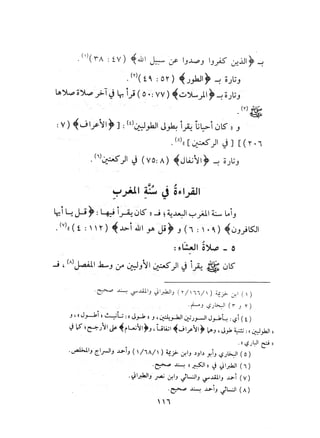 بـ ﴿الذين كفروا وصدوا عن سبيل الله﴾ (٤٧ : ٣٨)(١).
وتارة بـ ﴿الطور﴾ (٥٢ : ٤٩)(٢).
وتارة بـ ﴿المرسلات﴾ (٧٧ : ٥٠) قرأ بها في آخر صلاة صلاها
ﷺ(٣).
و « كان أحياناً يقرأ بطولى الطوليين(٤) : [ ﴿الأعراف﴾ (٧ :
٢٠٦) ] [ في الركعتين ] »(٥).
وتارة بـ ﴿الأنفال﴾ (٨ : ٧٥) في الركعتين(٦).
القراءة في سُنَّة المغرب
وأما سنة المغرب البعدية ؛ فـ « كان يقرأ فيها : ﴿قل يا أيها
الكافرون﴾ (١٠٩ : ٦) و ﴿قل هو الله أحد﴾ (١١٢ : ٤) »(٧).
٥ - صلاة العشاء :
كان ﷺ يقرأ في الركعتين الأوليين من وسط المفصل(٨) ، فـ
(١) ابن خزيمة (٢/١٦٦/١) والطبراني والمقدسي بسند صحيح.
(٢ و ٣) البخاري ومسلم.
(٤) أي : بأطول السورتين الطويلتين ، و « طولى » : تأنيث « أطول » ، و
« الطوليين » : تثنية طولى ، وهما ﴿الأعراف﴾ اتفاقاً ، و﴿الأنعام﴾ على الأرجح ؛ كما في
« فتح الباري ».
(٥) البخاري وأبو داود وابن خزيمة (١/٦٨/١) وأحمد والسراج والمخلص.
(٦) الطبراني في « الكبير » بسند صحيح.
(٧) أحمد والمقدسي والنسائي وابن نصر والطبراني.
(٨) النسائي وأحمد بسند صحيح.
١١٦